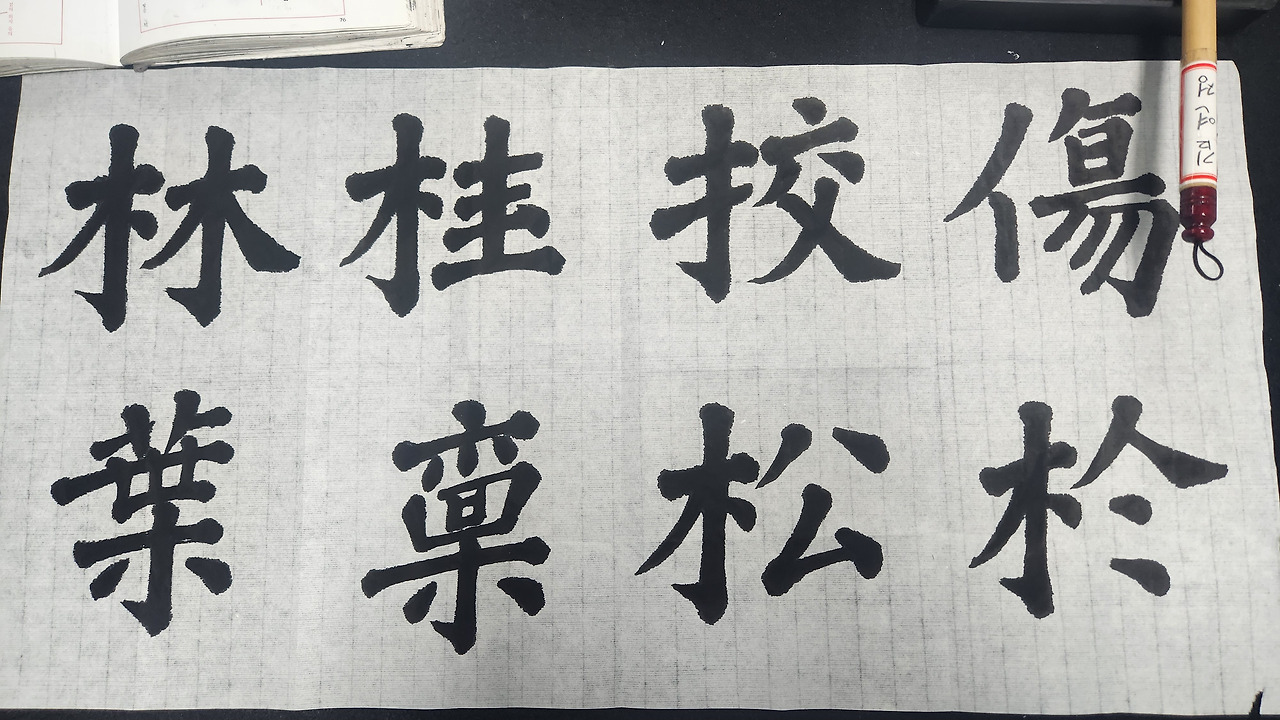 傷於
挍松
桂稟
林葉